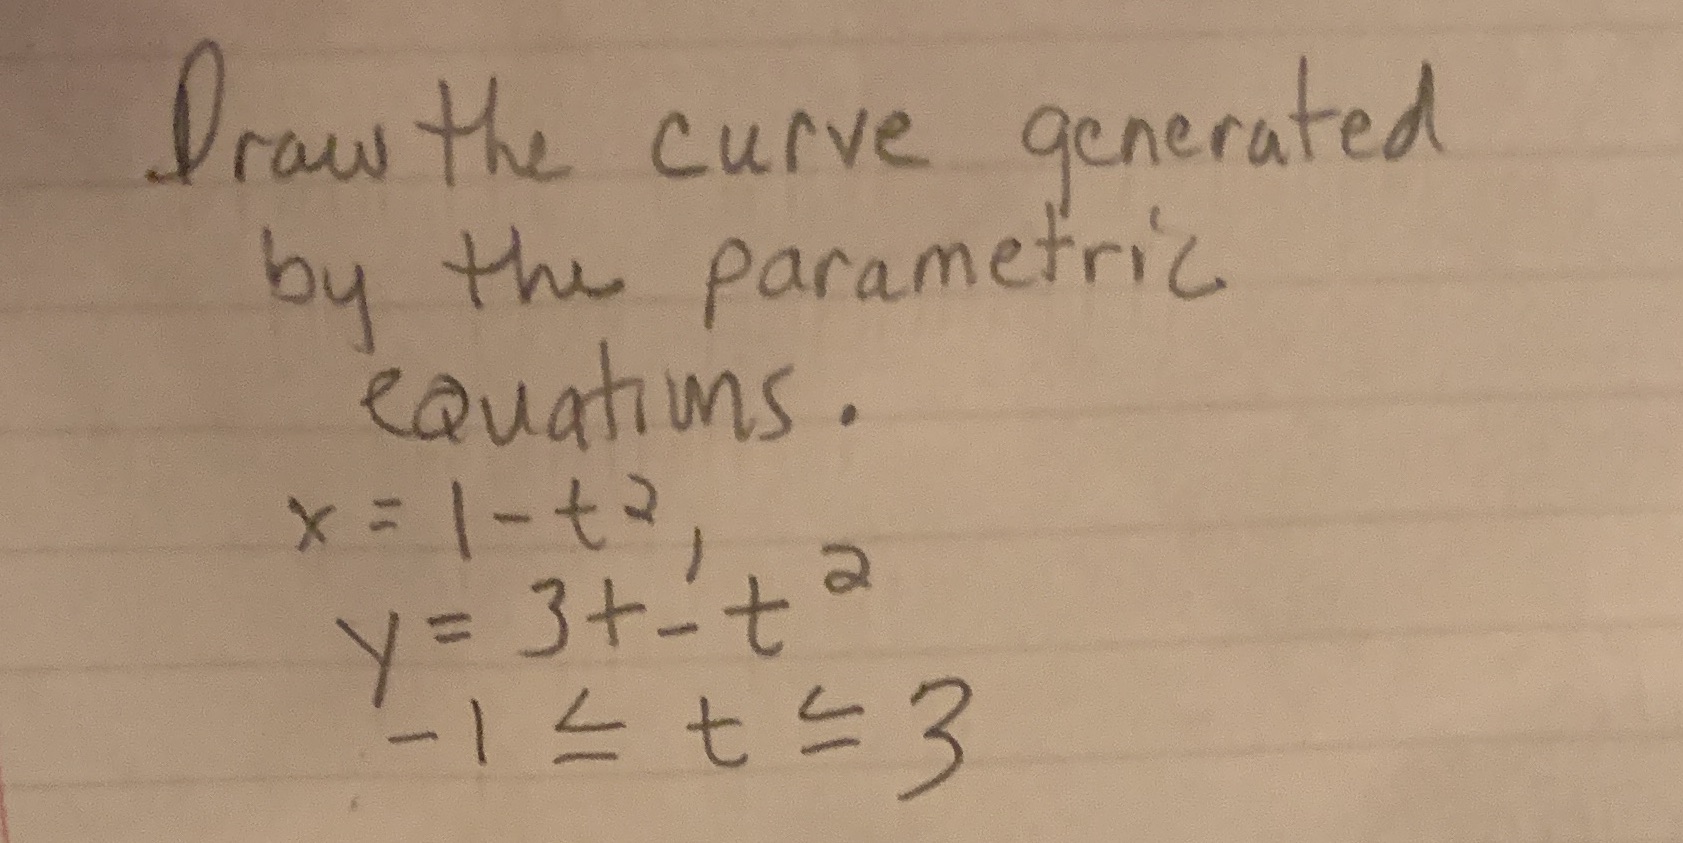 Draw the curve generated
by the parametric
equations.
x = 1 - t²,
y = 3t - t²
-1 ≤ t ≤ 3